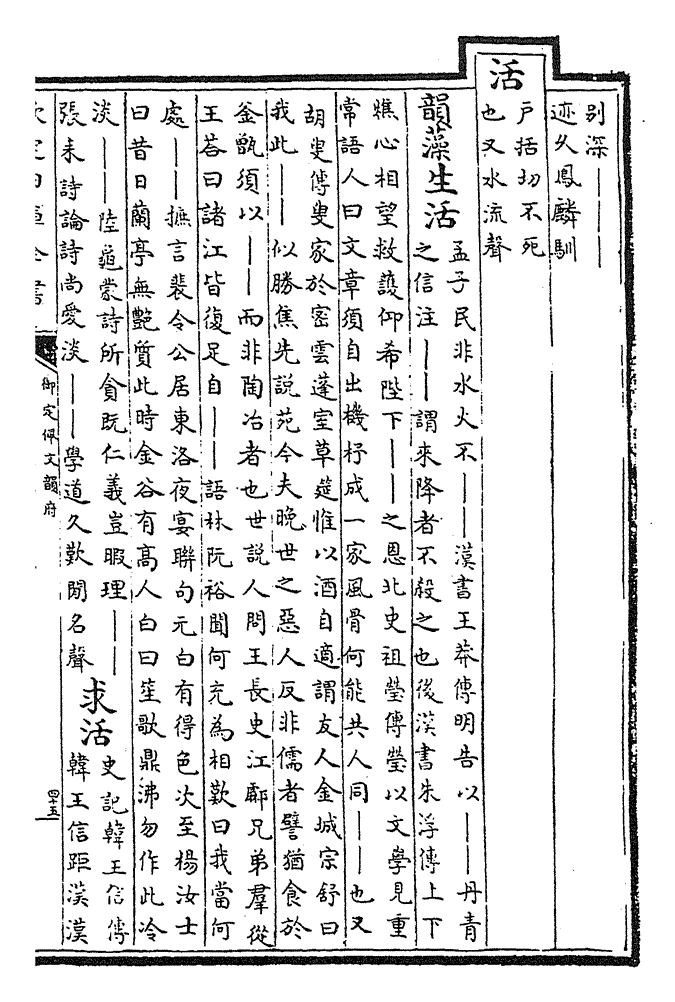 別深————
迹久鳳麟馴
活
戶括切不死
也又水流聲
韻藻生活
孟子民非水火不——漢書王莽傳明告以——丹青
之信注——謂來降者不殺之也後漢書朱浮傳上下
憔心相望救護仰希陛下——之恩北史祖瑩傳瑩以文學見重
常語人曰文章須自出機杼成一家風骨何能共人同——也又
胡叟傳叟家於密雲蓬室草筵惟以酒自適謂友人金城宗舒曰
我此——似勝焦先說苑今夫晚世之惡人反非儒者譬猶食於
釜甑須以——而非陶冶者也世說人問王長史江郿兄弟羣從
王荅曰諸江皆復足自——語林阮裕聞何充為相歎曰我當何
處——摭言裴令公居東洛夜宴聯句元白有得色次至楊汝士
曰昔日蘭亭無艷質此時金谷有高人白曰笙歌鼎沸勿作此冷
淡——陸龜蒙詩所貪既仁義豈暇理——
張耒詩論詩尚愛淡——學道久歎閒名聲
求活
史記韓王信傳
韓王信距漢漢
御定佩文韻府
四十五